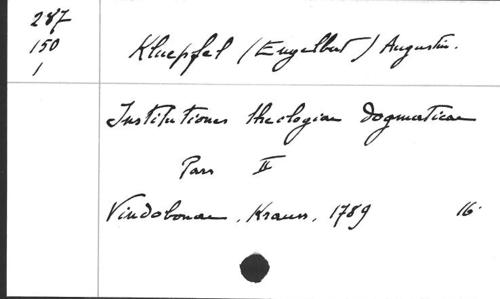 287
150
1
Kluepfel (Engelbert) Augustin.
Institutiones theologiae dogmaticae
Pars II
Vindobonae, Krauss, 1789 16.